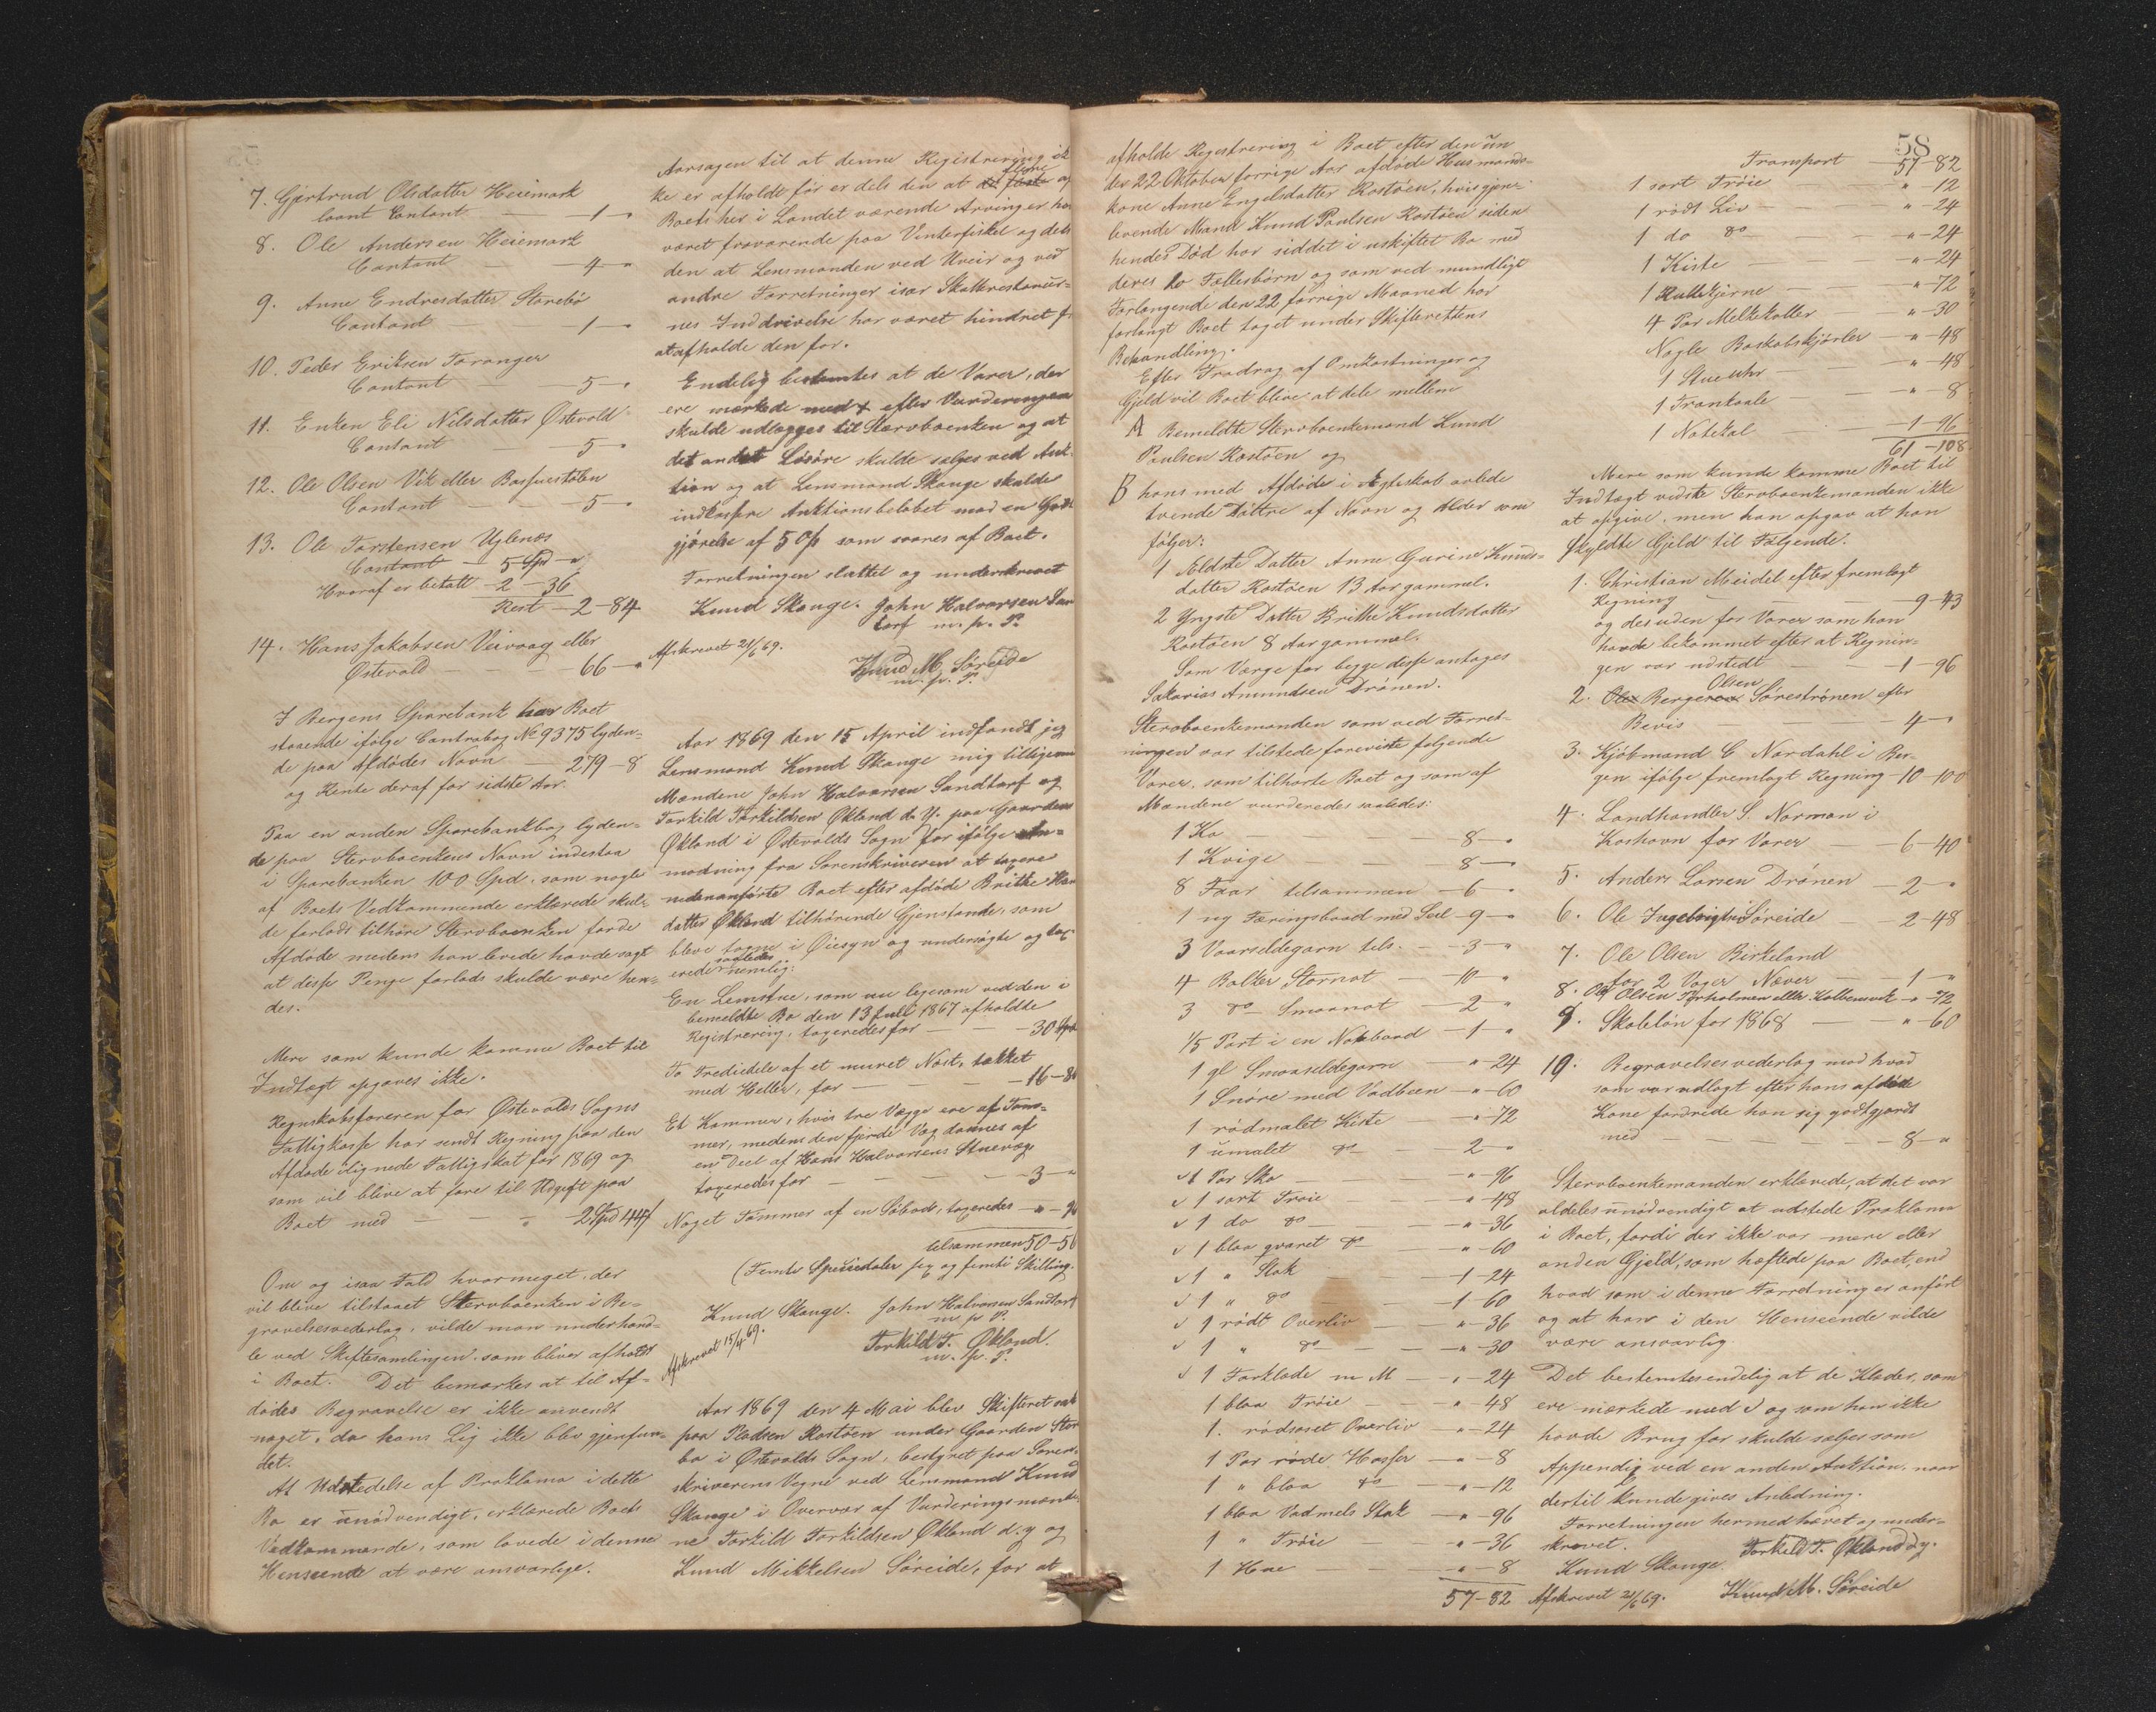 7. Gjertrud Olsdatter Heiemark
laant Contant — 1 — "
8. Ole Andersen Heiemark
Contant — 4 — "
9. Anne Endresdatter Storebø
Contant — 1 — "
10. Peder Eriksen Toranger
Contant — 5 — "
11. Enken Eli Nilsdatter Østevold
Contant — 5 — "
12. Ole Olsen Vik eller
Contant — 5 — "
13. Ole Torstensen Uglenæs
Contant — 5 Spd — "
Hvoraf er betalt 2 — 36
Rest — 2 — 84
14. Hans Jakobsen Veivaag eller
Østevold — 66 — "
I Bergens Sparebank har Boet
staaende ifølge Contrabog № 9375 lyden-
de paa Afdødes Navn — 279 — 8
og Rente deraf for sidste Aar.
Paa en anden Sparebankbog lyden-
de paa Stervboenkens Navn indestaa
i Sparebanken 100 Spd. som nogle
af Boets Vedkommende erklærede skul-
de forlods tilhøre Stervboenken fordi
Afdøde medens han levede havde sagt
at disse Penge forlods skulde være hen-
des.
Mere som kunde komme Boet til
Indtægt opgaves ikke.
Regnskabsføreren for Østevolds Sogns
Fattigkasse har sendt Regning paa den
Afdøde ilignede Fattigskat for 1869 og
som vil blive at føre til Udgift paa
Boet med — — 2 Spd 44 ß
Om og isaa Fald hvormeget, der
vil blive tilstaaet Stervboenken i Be-
gravelsesvederlag, vilde man underhand-
le ved Skiftesamlingen, som bliver afholdt
i Boet. Det bemærkes at til Af-
dødes Begravelse er ikke anvendt
noget, da hans Lig ikke blev gjenfun-
det.
At Udstedelse af Proklama i dette
Bo er unødvendigt, erklærede Boets
Vedkommende, som lovede i denne
Henseende at være ansvarlige.
Aarsagen til at denne Registrering ik
ke er afholdt før er dels den at flere af
Boets her i Landet værende Arvinger har
været fraværende paa Vinterfisket og dels
den at Lensmanden ved Uveir og ved
andre Forretninger især Skatterestancer-
nes Inddrivelse har været hindret fra
at afholde den før.
Endelig bestemtes at de Varer, der
ere mærkede med + efter Vurderingen
skulde udlægges til Stervboenken og at
det andet Løsøre skulde sælges ved Auk-
tion og at Lensmand Skauge skulde
indkassere Auktionsbeløbet mod en Godt
gjørelse af 5 o/o som svares af Boet.
Forretningen sluttet og underskrevet
Knud Skauge. John Halvorsen San
torf m. p. P.
Afskrevet 21/6 69.
Knud M. Søreide
m. p. P.
Aar 1869 den 15 April indfandt jeg
Lensmand Knud Skauge mig tilligemed
Mændene John Halvorsen Sandtorf og
Torkild Torkildsen Økland d. Y. paa Gaarden
Økland i Østevolds Sogn for ifølge An-
modning fra Sorenskriveren at taxere
nedenanførte Boet efter afdøde Brithe Han
datter Økland tilhørende Gjenstande, som
bleve tagne i Øiesyn og undersøgte og tax
erede saaledes nemlig:
En Lemstue, som nu ligesom ved den i
bemeldte Bo den 13 Juli 1867 afholdte
Registrering, taxeredes for — 30 Spd
To Trediedele af et muret Nøst, takket
med Heller, for — 16 — 80
Et Kammer, hvis tre Vægge ere af Tøm-
mer, medens den fjerde Væg dannes af
en Deel af Hans Halvorsens Stuevæg
taxeredes for — 3 — "
Noget Tømmer af en Søbod, taxeredes — " — 96
tilsammen 50 — 56
(Femti Speciedaler sex og femti Skilling.
Knud Skauge. John Halvorsen Sandtorf
m. p. P.
Afskrevet 15/4 69.
Torkild T. Økland.
m. p. P.
Aar 1869 den 4 Mai blev Skifteret sat
paa Pladsen Rostøen under Gaarden Stor
bø i Østevolds Sogn, bestyret paa Soren-
skriverens Vegne ved Lensmand Knud
Skauge i Overvær af Vurderingsmænde-
ne Torkild Torkildsen Økland d. y og
Knud Mikkelsen Søreide, for at
58
afholde Registrering i Boet efter den un
der 22 Oktober forrige Aar afdøde Husmands-
kone Anne Engelsdatter Rostøen, hvis gjen-
levende Mand Knud Paulsen Rostøen siden
hendes Død har siddet i uskiftet Bo med
deres to Fællesbørn og som ved mundligt
Forlangende den 22 forrige Maaned har
forlangt Boet taget under Skifterettens
Behandling.
Efter Fradrag af Omkostninger og
Gjeld vil Boet blive at dele mellem
A Bemeldte Stervboenkemand Knud
Paulsen Rostøen og
B hans med Afdøde i Ægteskab avlede
tvende Døttre af Navn og Alder som
følger:
1 Ældste Datter Anne Gurine Knuds-
datter Rostøen 13 Aar gammel.
2 Yngste Datter Brithe Knudsdatter
Rostøen 8 Aar gammel.
Som Værge for begge disse antages
Sakarias Amundsen Drønen.
Stervboenkemanden som ved Forret-
ningen var tilstede foreviste følgende
Varer, som tilhørte Boet og som af
Mændene vurderedes saaledes:
1 Ko — 8 — "
1 Kvige — 8 — "
8 Faar tilsammen — 6 — "
1 ny Færingsbaad med Seil — 9 — "
3 Vaarsildegarn tils. — 3 — "
4 Bolker Stornot — 10 — "
3 do Smaanot — 2 — "
1/5 Part i en Notbaad — 1 — "
1 gl Smaasildegarn — " — 24
1 Snøre med Vadbeen — " — 60
1 rødmalet Kiste — " — 72
1 umalet do — 2 — "
√ 1 Par Sko — " — 96
√ 1 sort Trøie — " — 48
√ 1 do do — " — 36
√ 1 blaa qvaret do — " — 60
√ 1 " Stak — 1 — 24
√ 1 " do — 1 — 60
√ 1 rødt Overliv — " — 36
√ 1 " do — " — 30
√ 1 Forklæde m M — " — 24
1 blaa Trøie — " — 48
1. rødroset Overliv — " — 24
1 Par røde Hosser — " — 8
1 " blaa do — " — 12
1 blaa Vadmels Stak — " — 96
1 " Trøie — " — 36
1 Hue — " — 8
57 — 82
Transport 57 — 82
1 sort Trøie — " — 12
1 rødt Liv — " — 24
1 do do — " — 24
1 Kiste — " — 24
1 Rullekjerne — " — 72
4 Par Melkekoller — " — 30
Nogle Boskabskjørler — " — 48
1 Stueuhr — " — 48
1 — " — 8
1 — 1 — 96
61 — 108
Mere som kunde komme Boet til
Indtægt vidste Stervboenkemanden ikke
at opgive, men han opgav at han
skyldte Gjeld til Følgende:
1. Christian Meidel efter fremlagt
Regning — 9 — 43
og desuden for Varer som han
havde bekommet efter at Regnin-
gen var udstedt — 1 — 96
2. Berge Olsen Sørestrønen efter
Bevis — 4 — "
3. Kjøbmand C Nordahl i Ber-
gen ifølge fremlagt Regning — 10 — 100
4. Landhandler S. Norman i
Koshavn for Varer — 6 — 40
5. Anders Larsen Drønen — 2 — "
6. Ole Søreide — 2 — 48
7. Ole Olsen Birkeland
for 2 Voger Næver — 1 — "
8. Ole Olsen eller — " — 72
9. Skoleløn for 1868 — " — 60
10. Begravelsesvederlag mod hvad
som var udlagt efter hans afdøde
Kone fordrede han sig godtgjordt
med — 8 — "
Stervboenkemanden erklærede, at det var
aldeles unødvendigt at udstede Proklama
i Boet, fordi der ikke var mere eller
anden Gjeld, som hæftede paa Boet, end
hvad som i denne Forretning er anført
og at han i den Henseende vilde
være ansvarlig.
Det bestemtes endelig at de Klæder, som
ere mærkede med √ og som han ikke
havde Brug for skulde sælges som
Appendix ved en anden Auktion, naar
dertil kunde gives Anledning.
Forretningen hermed hævet og under-
skrevet.
Knud Skauge. Torkild T. Økland d. y.
Afskrevet 21/6 69. Knud M. Søreide